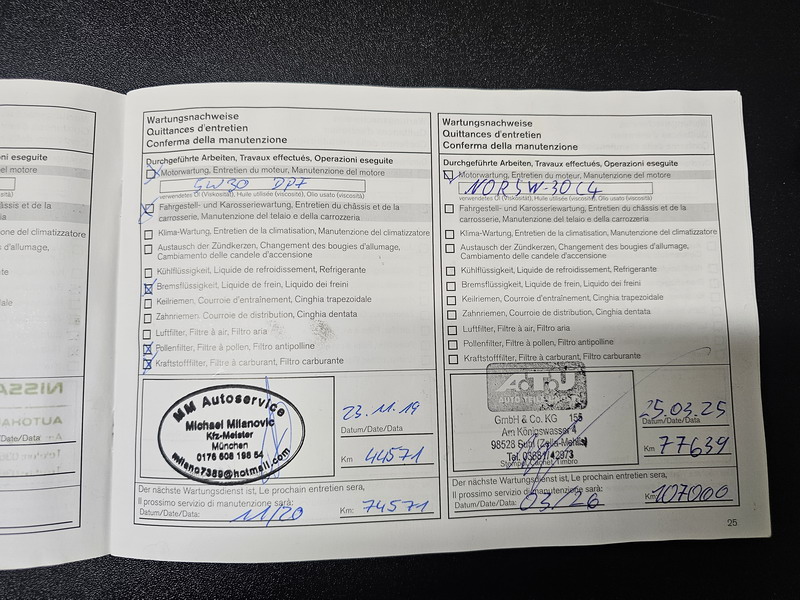 ni eseguite
sità)
ne del climatizzatore
ante
ale
NISSA
AUTOHAU
/Date/Data
Wartungsnachweise
Quittances d'entretien
Conferma della manutenzione
Durchgeführte Arbeiten, Travaux effectués, Operazioni eseguite
Motorwartung, Entretien du moteur, Manutenzione del motore
5W30 DPF
verwendetes Öl (Viskosität), Huile utilisée (viscosité), Olio usato (viscosità)
Fahrgestell- und Karosseriewartung, Entretien du châssis et de la
carrosserie, Manutenzione del telaio e della carrozzeria
Klima-Wartung, Entretien de la climatisation, Manutenzione del climatizzatore
Austausch der Zündkerzen, Changement des bougies d'allumage,
Cambiamento delle candele d'accensione
Kühlflüssigkeit, Liquide de refroidissement, Refrigerante
Bremsflüssigkeit, Liquide de frein, Liquido dei freini
Keilriemen, Courroie d'entraînement, Cinghia trapezoidale
Zahnriemen, Courroie de distribution, Cinghia dentata
Luftfilter, Filtre à air, Filtro aria
Pollenfilter, Filtre à pollen, Filtro antipolline
Kraftstofffilter, Filtre à carburant, Filtro carburante
MM Autoservice
Michael Milanovic
Kfz-Meister
München
0176 608 198 54
milano7389@hotmail.com
23.11.19
Datum/Date/Data
Km 44571
Der nächste Wartungsdienst ist, Le prochain entretien sera,
Il prossimo servizio di manutenzione sarà:
Datum/Date/Data: 11/20 Km: 74571
Wartungsnachweise
Quittances d'entretien
Conferma della manutenzione
Durchgeführte Arbeiten, Travaux effectués, Operazioni eseguite
Motorwartung, Entretien du moteur, Manutenzione del motore
NOR 5W-30 C4
verwendetes Öl (Viskosität), Huile utilisée (viscosité), Olio usato (viscosità)
Fahrgestell- und Karosseriewartung, Entretien du châssis et de la
carrosserie, Manutenzione del telaio e della carrozzeria
Klima-Wartung, Entretien de la climatisation, Manutenzione del climatizzatore
Austausch der Zündkerzen, Changement des bougies d'allumage,
Cambiamento delle candele d'accensione
Kühlflüssigkeit, Liquide de refroidissement, Refrigerante
Bremsflüssigkeit, Liquide de frein, Liquido dei freini
Keilriemen, Courroie d'entraînement, Cinghia trapezoidale
Zahnriemen, Courroie de distribution, Cinghia dentata
Luftfilter, Filtre à air, Filtro aria
Pollenfilter, Filtre à pollen, Filtro antipolline
Kraftstofffilter, Filtre à carburant, Filtro carburante
A.T.U
GmbH & Co. KG 155
Am Königswasser 4
98528 Suhl (Zella-Mehlis)
Tel. 03681/42973
Stempel, Cachet, Timbro
25.03.25
Datum/Date/Data
Km 77639
Der nächste Wartungsdienst ist, Le prochain entretien sera,
Il prossimo servizio di manutenzione sarà:
Datum/Date/Data: 03/26 Km: 107000
25